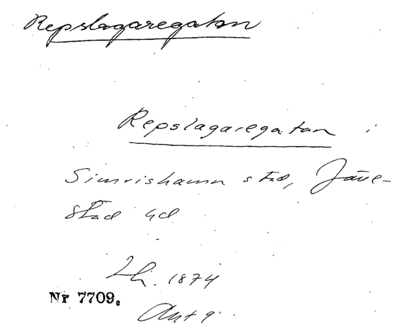 Repslagaregatan
Repslagaregatan i
Simrishamn stad, Järre-
stad hd
Lh. 1874
Nr 7709.
Akt 9.